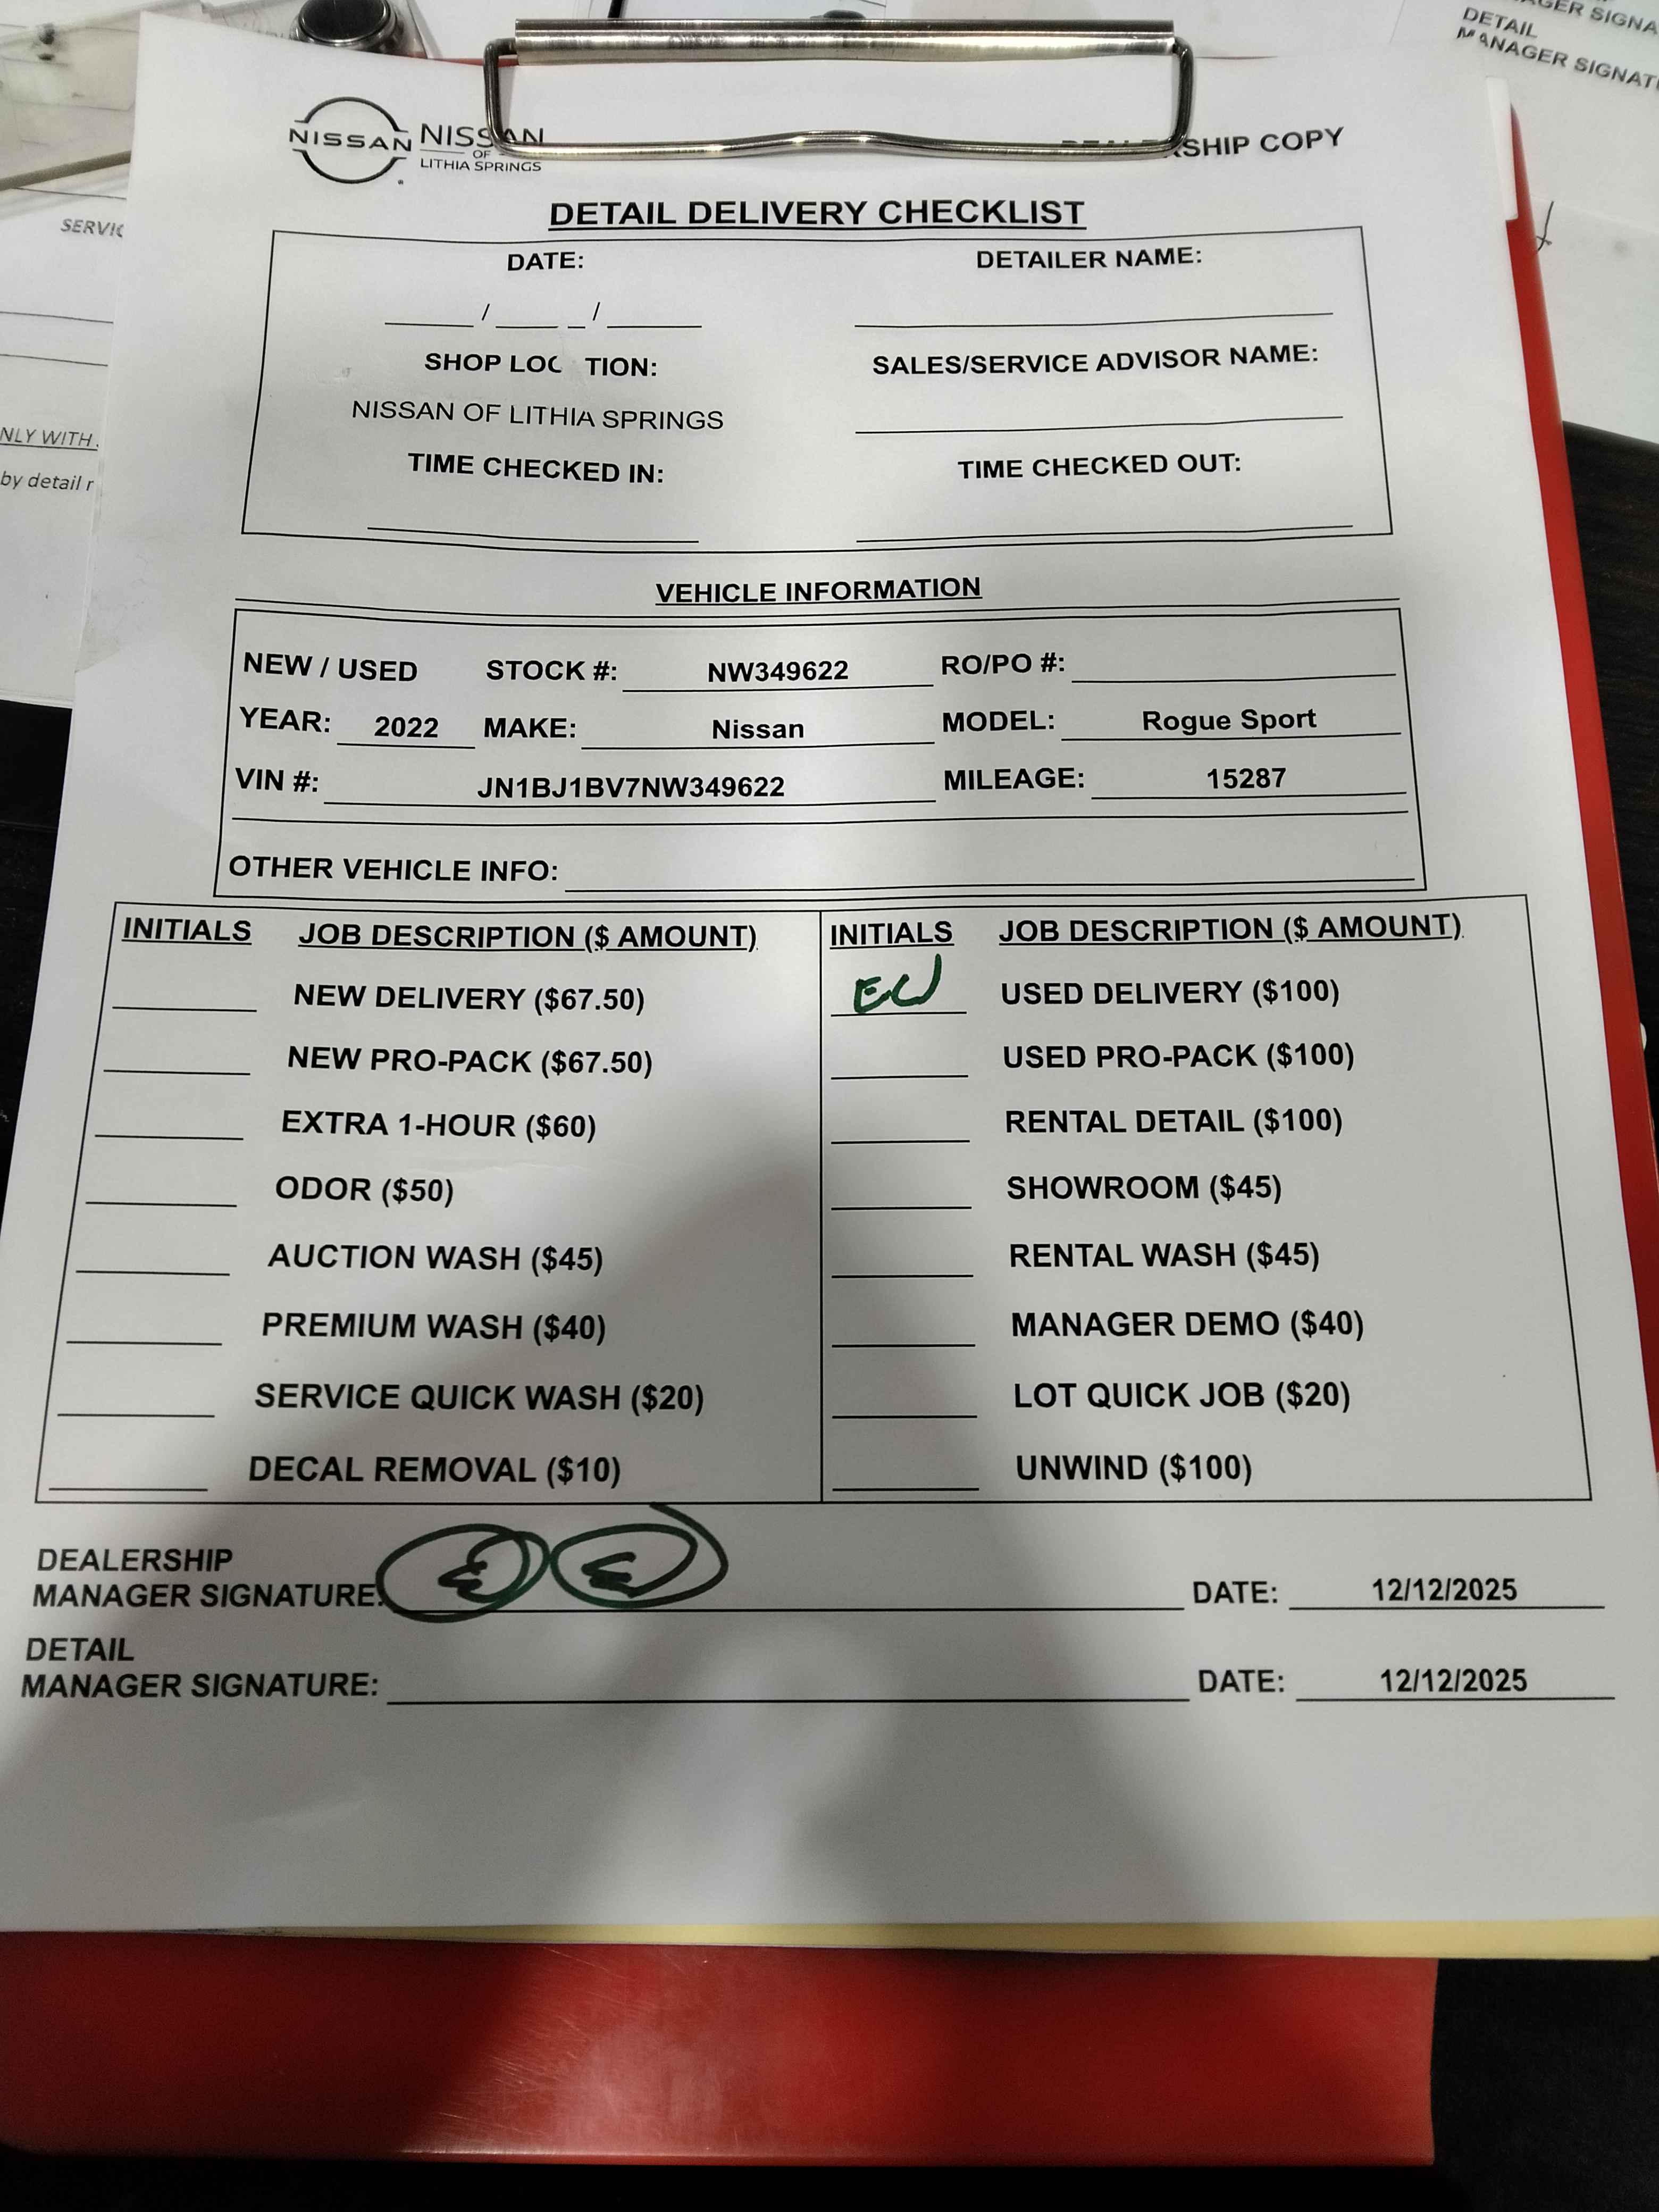 GER SIGNA
DETAIL
MANAGER SIGNAT
NISSAN NISSAN
OF
LITHIA SPRINGS
SHIP COPY
DETAIL DELIVERY CHECKLIST
DATE: DETAILER NAME:
____ / ___ _ / ____
SHOP LOC TION: SALES/SERVICE ADVISOR NAME:
NISSAN OF LITHIA SPRINGS
TIME CHECKED IN: TIME CHECKED OUT:
SERVIC
NLY WITH
by detail r
VEHICLE INFORMATION
NEW / USED STOCK #: NW349622 RO/PO #:
YEAR: 2022 MAKE: Nissan MODEL: Rogue Sport
VIN #: JN1BJ1BV7NW349622 MILEAGE: 15287
OTHER VEHICLE INFO:
INITIALS JOB DESCRIPTION ($ AMOUNT) INITIALS JOB DESCRIPTION ($ AMOUNT)
NEW DELIVERY ($67.50) USED DELIVERY ($100)
NEW PRO-PACK ($67.50) USED PRO-PACK ($100)
EXTRA 1-HOUR ($60) RENTAL DETAIL ($100)
ODOR ($50) SHOWROOM ($45)
AUCTION WASH ($45) RENTAL WASH ($45)
PREMIUM WASH ($40) MANAGER DEMO ($40)
SERVICE QUICK WASH ($20) LOT QUICK JOB ($20)
DECAL REMOVAL ($10) UNWIND ($100)
DEALERSHIP
MANAGER SIGNATURE: DATE: 12/12/2025
DETAIL
MANAGER SIGNATURE: DATE: 12/12/2025